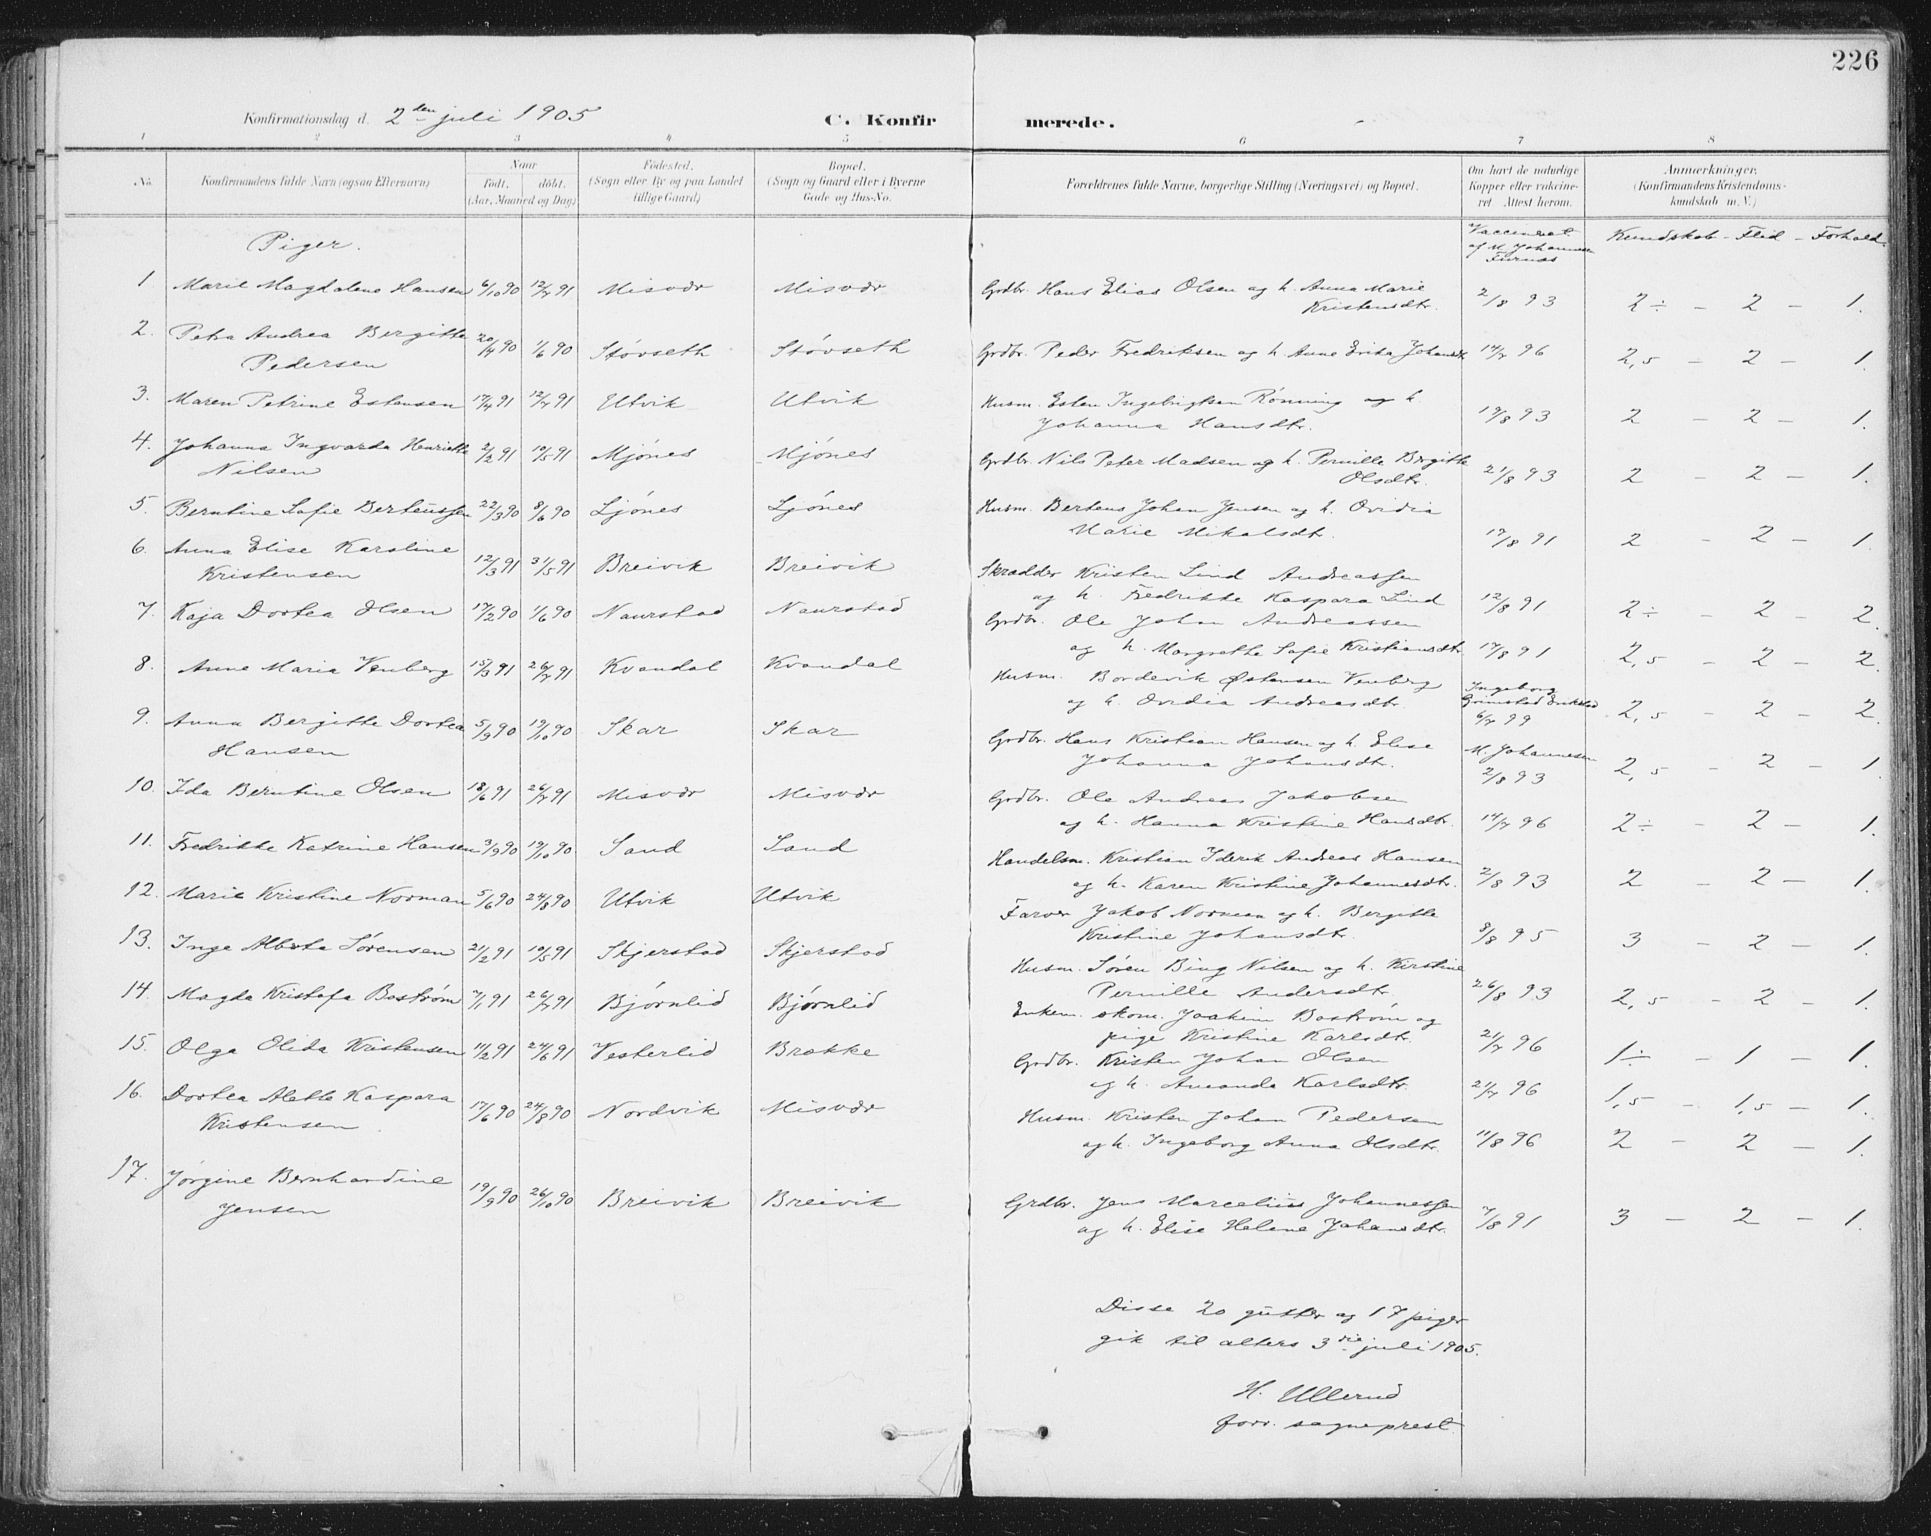 226
Konfirmationsdag d. 2den juli 1905
C. Konfirmerede.
1 2 3 4 5 6 7 8
No.
Konfirmandens fulde Navn (ogsaa Efternavn)
Naar
født. døbt.
(Aar, Maaned og Dag)
Fødested.
(Sogn eller By og paa Landet
tillige Gaard)
Bopæl.
(Sogn og Gaard eller i Byerne
Gade og Hus-No.
Forældrenes fulde Navne, borgerlige Stilling (Næringsvei) og Bopæl.
Om havt de naturlige
Kopper eller vakcine-
ret. Attest herom.
Anmerkninger.
(Konfirmandens Kristendoms-
kundskab m. V.)
Piger.
Vaccineret
af M. Johannesen
Furnes
Kundskab - Flid - Forhold.
1 Marie Magdalene Hansen 6/10 90 12/4 91 Misvær Misvær Grdbr. Hans Elias Olsen og h. Anna Marie
Kristensdtr. 2/8 93 2÷ - 2 - 1.
2. Petra Andrea Bergitte
Pedersen 20/4 90 1/6 90 Støvseth Støvseth Grdbr. Peder Fredriksen og h. Anne Erika Johansdt 14/7 96 2,5 - 2 - 1.
3. Maren Petrine Estensen 17/4 91 12/7 91 Utvik Utvik Husm. Esten Ingebrigtsen Rønning og h.
Johanna Hansdtr. 19/8 93 2 - 2 - 1.
4. Johanna Ingvarda Henriette
Nilsen 2/2 91 10/5 91 Mjónes Mjónes Grdbr. Nils Peter Madsen og h. Pernille Birgitte
Olsdtr. 21/8 93 2 - 2 - 1.
5. Berntine Sofie Berteussen 22/3 90 8/6 90 Ljónes Ljónes Husm. Berteus Johan Jensen og h. Ovidia
Marie Mikalsdt. 17/8 91 2 - 2 - 1.
6. Anna Elise Karoline
Kristensen 12/3 91 31/5 91 Breivik Breivik Skrædder Kristen Lind Andreassen
og h. Fredrikke Kaspara Lind 12/8 91 2÷ - 2 - 2.
7. Kaja Dortea Olsen 17/2 90 1/6 90 Naurstad Naurstad Grdbr. Ole Johan Andreassen
og h. Margrethe Sofie Kristiansdtr. 17/8 91 2,5 - 2 - 2.
8. Anne Maria Venberg 15/3 91 26/7 91 Kvandal Kvandal Husm. Bordevik Østensen Venberg
og h. Ovidia Andreasdtr. Ingeborg
Grimstad
6/7 99 2,5 - 2 - 2.
9. Anna Bergitte Dortea
Hansen 5/9 90 19/10 90 Skar Skar Grdbr. Hans Kristian Hansen og h. Elise
Johanna Johansdt. M. Johannesen
2/8 93 2,5 - 2 - 1.
10. Ida Berntine Olsen 18/6 91 26/7 91 Misvær Misvær Grdbr. Ole Andreas Jakobsen
og h. Hanna Kristine Hansdtr. 14/7 96 2÷ - 2 - 1.
11. Fredrikke Katrine Hansen 3/9 90 19/10 90 Sand Sand Handelsm. Kristian Iderik Andreas Hansen
og h. Karen Kristine Johannesdtr. 2/8 93 2 - 2 - 1.
12. Marie Kristine Norman 5/6 90 24/8 90 Utvik Utvik Farver Jakob Norman og h. Bergitte
Kristine Johansdtr. 8/8 95 3 - 2 - 1.
13. Inga Alberta Sørensen 21/2 91 10/5 91 Skjerstad Skjerstad Husm. Søren Bing Nilsen og h. Kirstine
Pernille Andersdtr. 26/8 93 2,5 - 2 - 1.
14. Magda Kristofa Bostrøm 7/1 91 26/7 91 Bjørnlid Bjørnlid Enkem. skom. Joakim Bostrøm og
pige Kristine Karlsdtr. 21/7 96 1÷ - 1 - 1.
15. Olga Olida Kristensen 11/2 91 24/6 91 Vesterlid Brække Grdbr. Kristen Johan Olsen
og h. Amanda Karlsdtr. 21/7 96 1,5 - 1,5 - 1.
16. Dortea Alette Kaspara
Kristensen 17/6 90 24/8 90 Nordvik Misvær Husm. Kristen Johan Pedersen
og h. Ingeborg Anna Olsdtr. 11/8 96 2 - 2 - 1.
17. Jørgine Bernhardine
Jensen 19/9 90 26/10 90 Breivik Breivik Grdbr. Jens Marcelius Johannessen
og h. Elise Helene Johansdtr. 7/8 91 3 - 2 - 1.
Disse 20 gutter og 17 piger
gik til alters 3die juli 1905.
H. Ullerud
forr. sogneprest